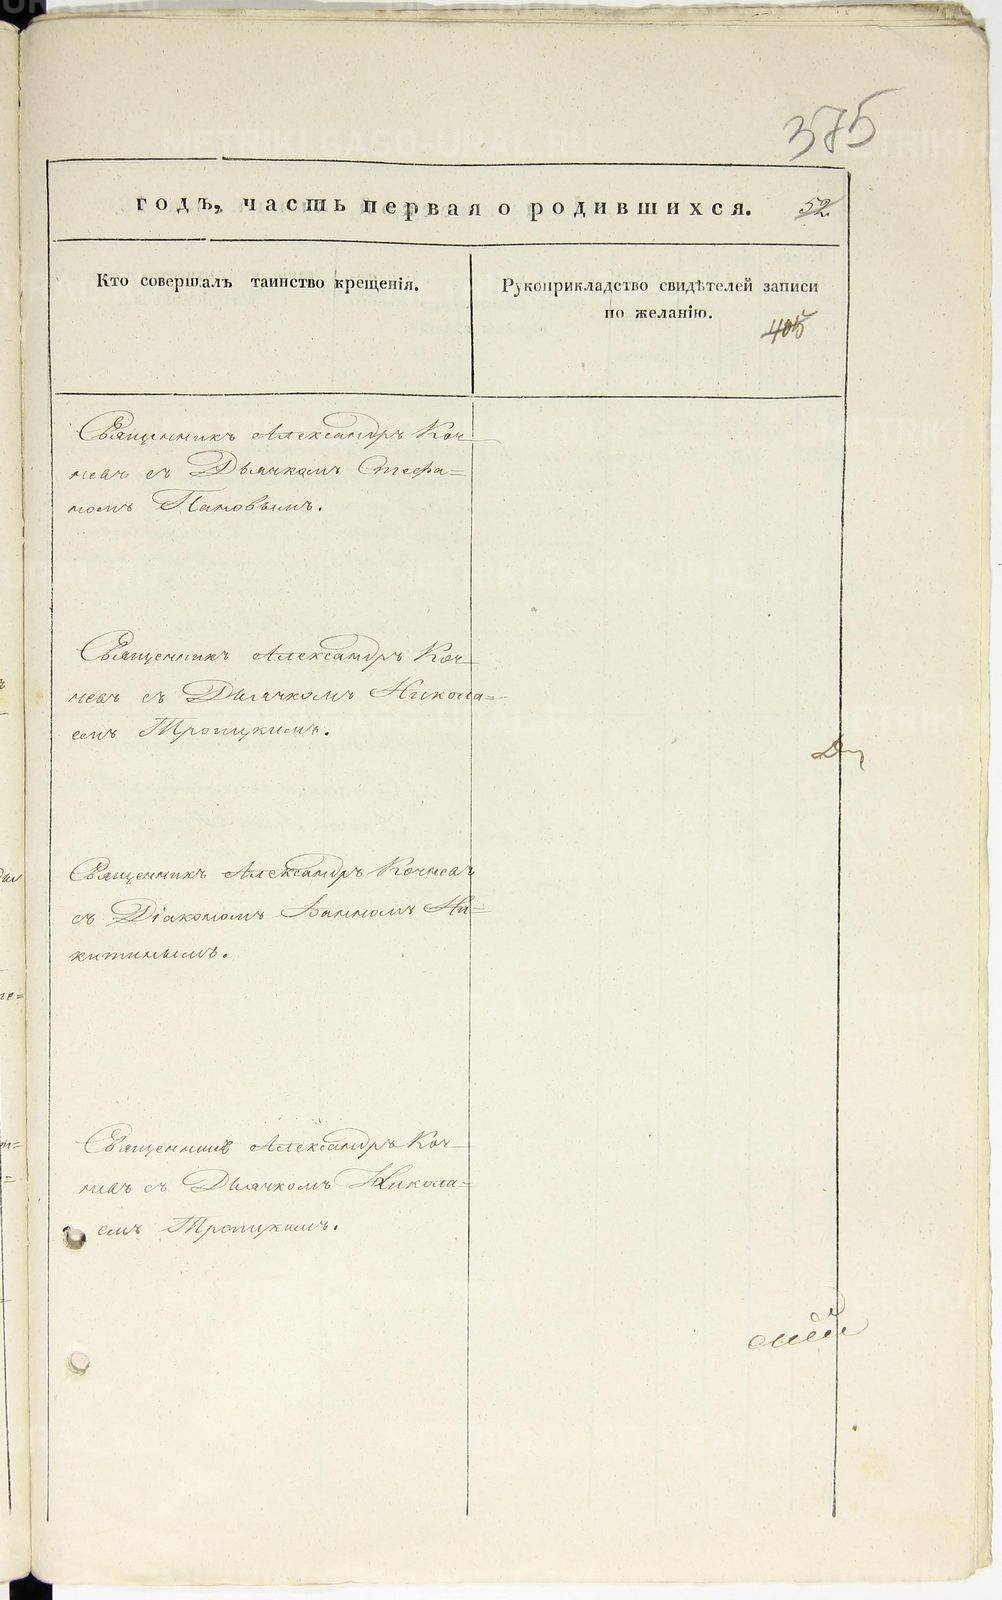 375
годъ, часть первая о родившихся. 52
Кто совершалъ таинство крещенія.
Рукоприкладство свидѣтелей записи
по желанію.
405
Священникъ Александръ Коч-
невъ съ Дьячкомъ Стефа=
номъ Пановымъ.
Священникъ Александръ Коч-
невъ съ Дьячкомъ Никола=
емъ Троицкимъ.
Священникъ Александръ Кочневъ
съ Діакономъ Іоанномъ Ни=
китинымъ.
Священникъ Александръ Коч-
невъ съ Дьячкомъ Никола=
емъ Троицкимъ.
METRIKI.GASO-URAL.RU